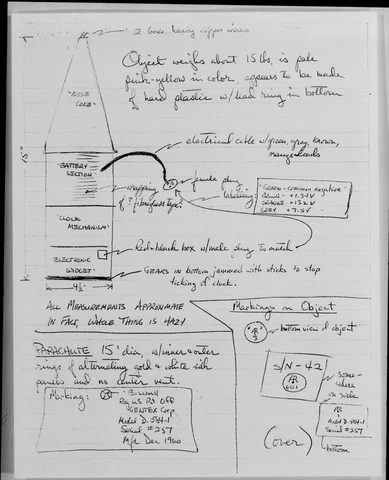 2 6000 heavy copper wires
Object weighs about 15 lbs. is pale
pink-yellow in color, appears to be made
of hard plastic w/lead ring in bottom
"NOSE
CONE"
15"
electrical cable w/green, gray, brown,
orange leads
"BATTERY
SECTION"
female plug
wrapping
of ? fiberglass type?
labelling
GREEN - common negative
+1.34V
ORANGE - +132V
GREY + 7.5V
"CLOCK
MECHANISM"
Red-black box w/male plug to match
ELECTRONIC
GADGET"
GEARS in bottom jammed with sticks to stop
ticking of clock.
4½"
ALL MEASUREMENTS APPROXIMATE
IN FACT, WHOLE THING IS HAZY
Markings on Object
bottom view of object
PARACHUTE 15' dia, w/inner & outer
rings of alternating gold & white silk
panels and no center vent.
Marking:
Reg US Pat Off
Corp.
Model D-584-1
Serial #257
Mfr Dec 1960
S/N-42
601
some-
where
on side
Model D-584-1
Serial #257
bottom
(over)